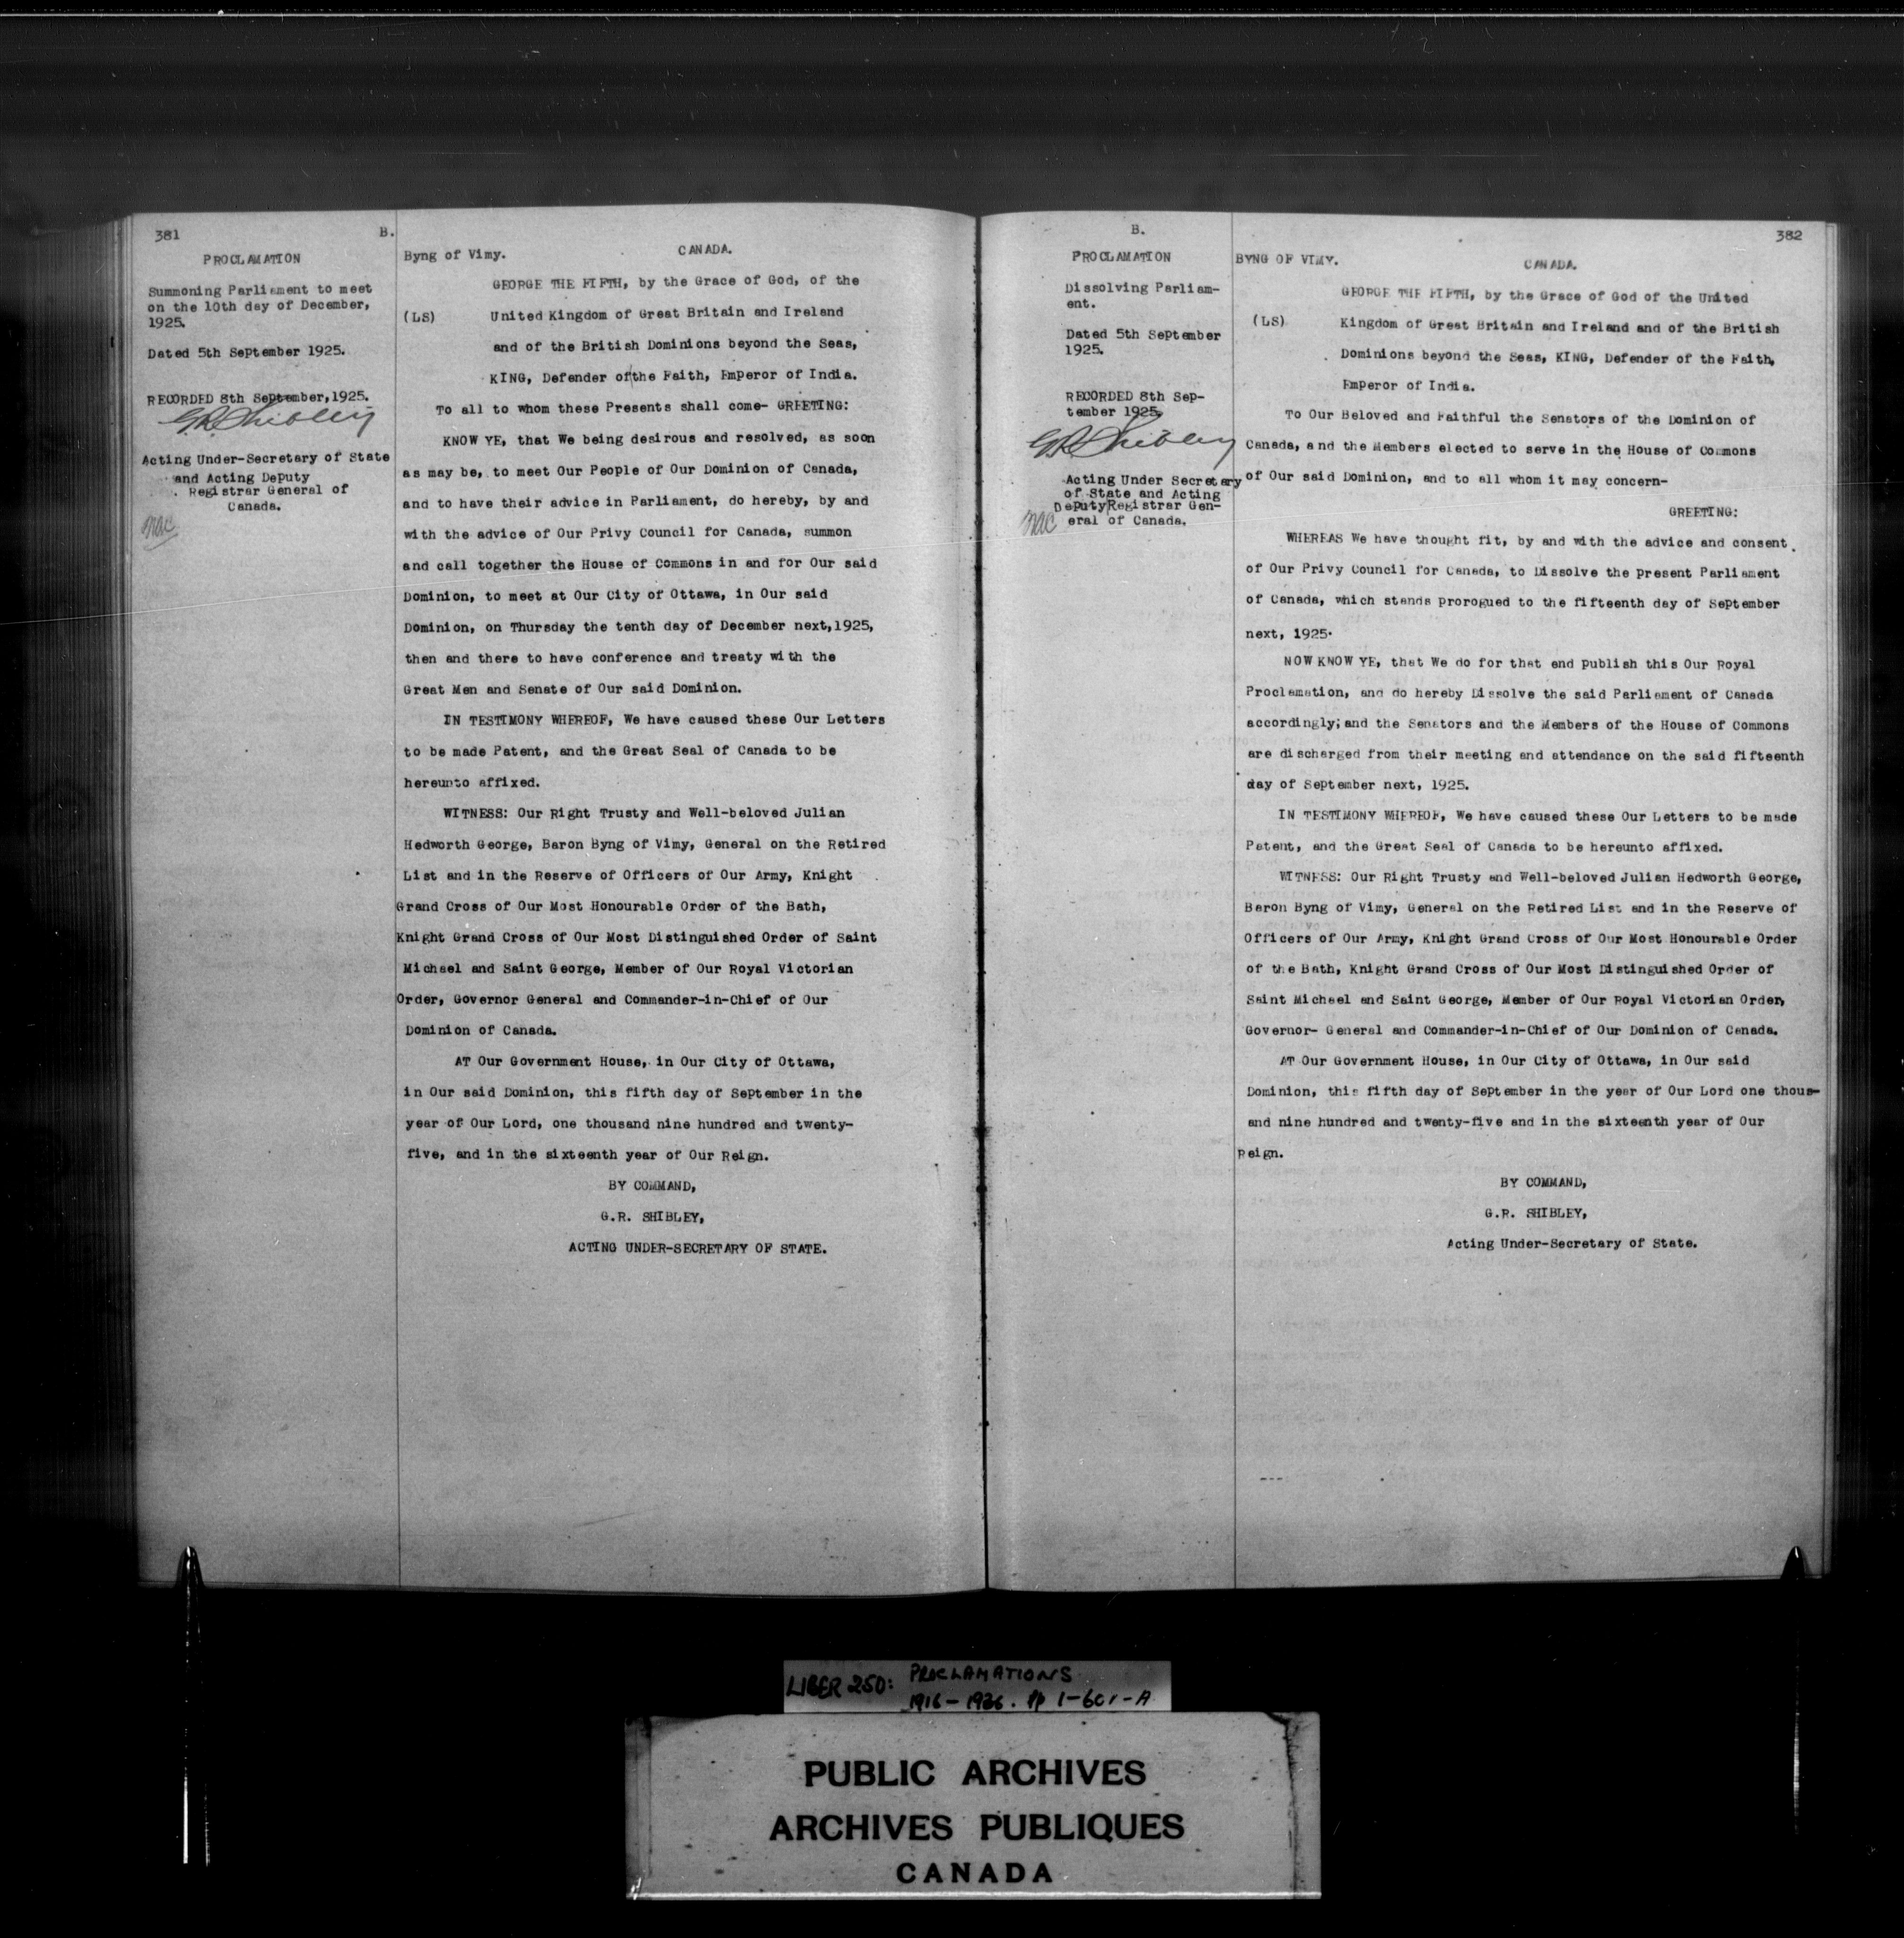 381
B.
PROCLAMATION
Summoning Parliament to meet
on the 10th day of December,
1925.
Dated 5th September 1925.
RECORDED 8th September, 1925.
G.R. Shibley
Acting Under-Secretary of State
and Acting Deputy
Registrar General of
Canada.
Byng of Vimy.
CANADA.
GEORGE THE FIFTH, by the Grace of God, of the
(LS)
United Kingdom of Great Britain and Ireland
and of the British Dominions beyond the Seas,
KING, Defender of the Faith, Emperor of India.
To all to whom these Presents shall come- GREETING:
KNOW YE, that We being desirous and resolved, as soon
as may be, to meet Our People of Our Dominion of Canada,
and to have their advice in Parliament, do hereby, by and
with the advice of Our Privy Council for Canada, summon
and call together the House of Commons in and for Our said
Dominion, to meet at Our City of Ottawa, in Our said
Dominion, on Thursday the tenth day of December next, 1925,
then and there to have conference and treaty with the
Great Men and Senate of Our said Dominion.
IN TESTIMONY WHEREOF, We have caused these Our Letters
to be made Patent, and the Great Seal of Canada to be
hereunto affixed.
WITNESS: Our Right Trusty and Well-beloved Julian
Hedworth George, Baron Byng of Vimy, General on the Retired
List and in the Reserve of Officers of Our Army, Knight
Grand Cross of Our Most Honourable Order of the Bath,
Knight Grand Cross of Our Most Distinguished Order of Saint
Michael and Saint George, Member of Our Royal Victorian
Order, Governor General and Commander-in-Chief of Our
Dominion of Canada.
AT Our Government House, in Our City of Ottawa,
in Our said Dominion, this fifth day of September in the
year of Our Lord, one thousand nine hundred and twenty-
five, and in the sixteenth year of Our Reign.
BY COMMAND,
G.R. SHIBLEY,
ACTING UNDER-SECRETARY OF STATE.
B.
382
PROCLAMATION
Dissolving Parliam-
ent.
Dated 5th September
1925.
RECORDED 8th Sep-
tember 1925.
G.R. Shibley
Acting Under Secretary
of State and Acting
Deputy Registrar Gen-
eral of Canada.
BYNG OF VIMY.
CANADA.
GEORGE THE FIFTH, by the Grace of God of the United
(LS)
Kingdom of Great Britain and Ireland and of the British
Dominions beyond the Seas, KING, Defender of the Faith,
Emperor of India.
To Our Beloved and Faithful the Senators of the Dominion of
Canada, and the Members elected to serve in the House of Commons
of Our said Dominion, and to all whom it may concern-
GREETING:
WHEREAS We have thought fit, by and with the advice and consent
of Our Privy Council for Canada, to Dissolve the present Parliament
of Canada, which stands prorogued to the fifteenth day of September
next, 1925.
NOW KNOW YE, that We do for that end publish this Our Royal
Proclamation, and do hereby Dissolve the said Parliament of Canada
accordingly; and the Senators and the Members of the House of Commons
are discharged from their meeting and attendance on the said fifteenth
day of September next, 1925.
IN TESTIMONY WHEREOF, We have caused these Our Letters to be made
Patent, and the Great Seal of Canada to be hereunto affixed.
WITNESS: Our Right Trusty and Well-beloved Julian Hedworth George,
Baron Byng of Vimy, General on the Retired List and in the Reserve of
Officers of Our Army, Knight Grand Cross of Our Most Honourable Order
of the Bath, Knight Grand Cross of Our Most Distinguished Order of
Saint Michael and Saint George, Member of Our Royal Victorian Order,
Governor- General and Commander-in-Chief of Our Dominion of Canada.
AT Our Government House, in Our City of Ottawa, in Our said
Dominion, this fifth day of September in the year of Our Lord one thous-
and nine hundred and twenty-five and in the sixteenth year of Our
Reign.
BY COMMAND,
G.R. SHIBLEY,
Acting Under-Secretary of State.
---
LIBER 250: PROCLAMATIONS
1916-1926. pp 1-601-A
PUBLIC ARCHIVES
ARCHIVES PUBLIQUES
CANADA